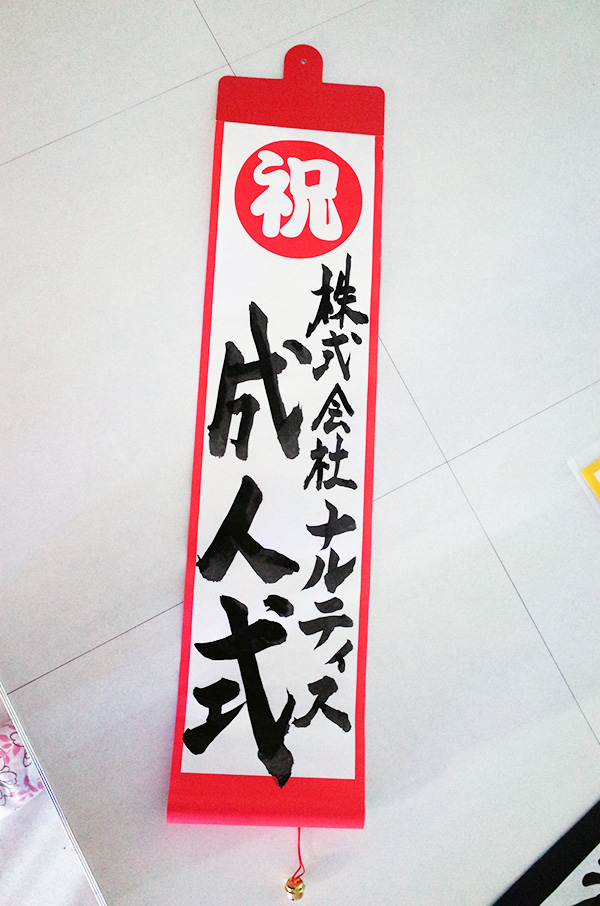 祝
株式会社ナルティス
成人式